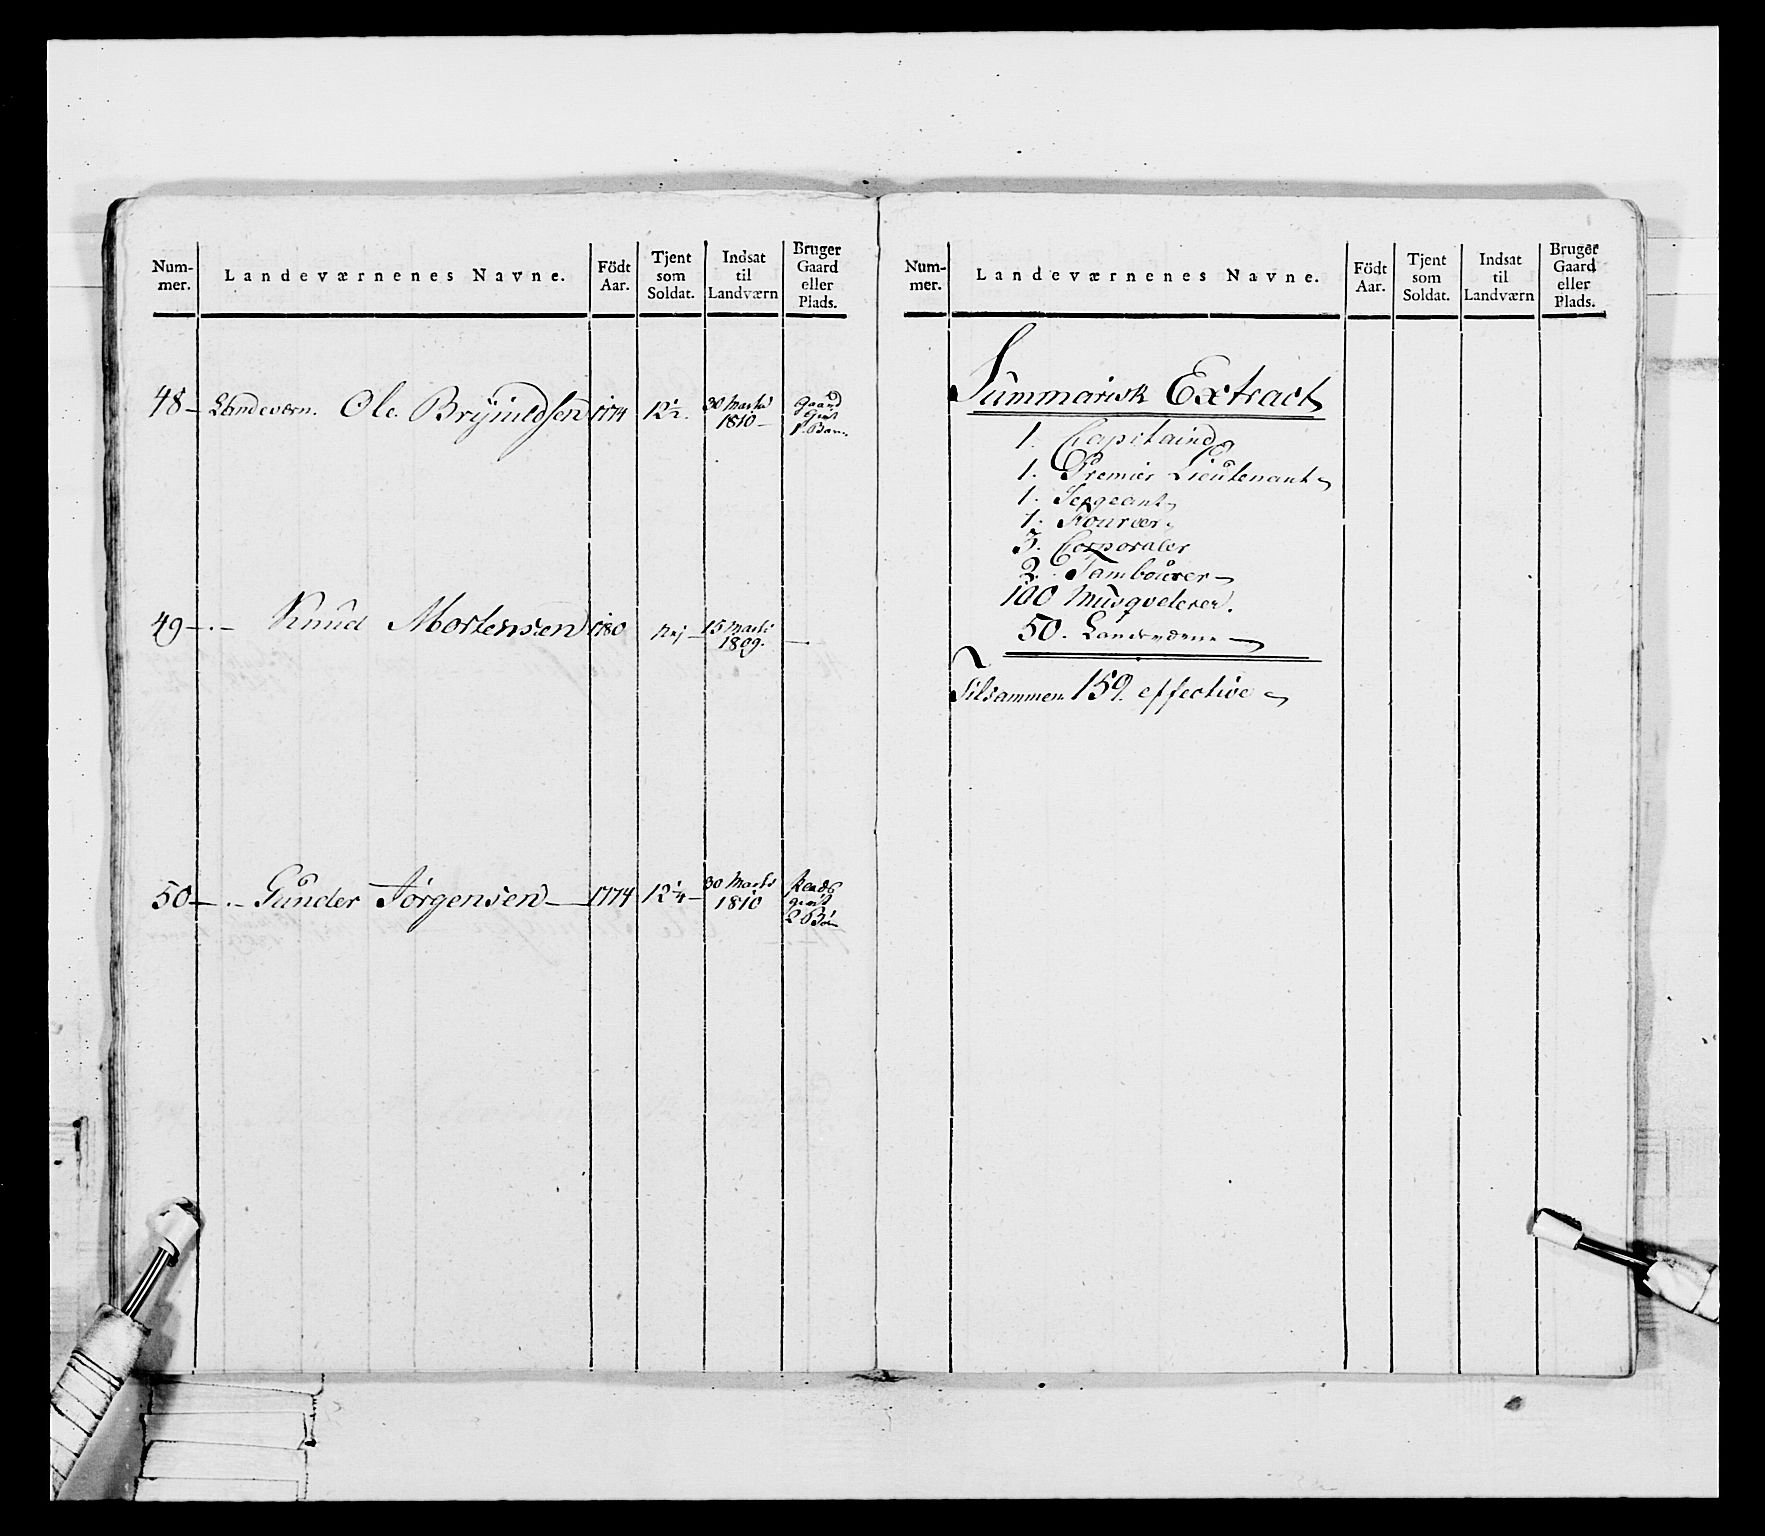 Num-
mer.
Landeværnenes Navne.
Födt
Aar.
Tjent
som
Soldat.
Indsat
til
Landværn
Bruger
Gaard
eller
Plads.
48 - Landeværn. Ole Brynildsen 1774 12½. 30 Marts 1810 - Gaard Givt 1. Barn
49 - . - Knud Mortensen 1780 Nej - 15 Marts 1809. -
50 - . - Gunder Jörgensen - 1774 12¼ - 30 Marts 1810 givt 2 Börn
Num-
mer.
Landeværnenes Navne.
Födt
Aar.
Tjent
som
Soldat.
Indsat
til
Landværn
Bruger
Gaard
eller
Plads.
Summarisk Extract
1. Capitaind
1. Premier Lieutenant
1. Sergeant
1. Fourier
3. Corporaler
2. Tambourer
100 Musqveterer.
50. Landeværn
Tilsammen 159. effective